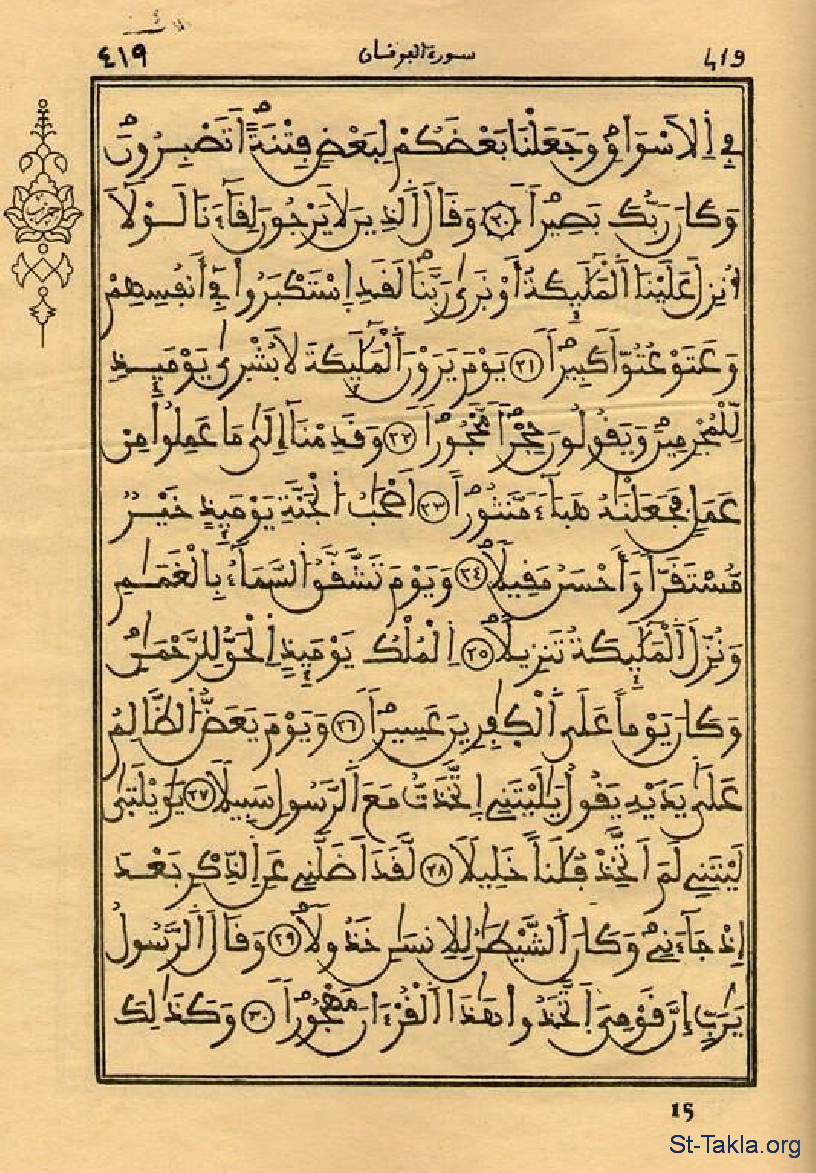 ٤١٩ سورة الفرفان 419
فِي اِلَاسْوَاقِ وَجَعَلْنَا بَعْضَكُمْ لِبَعْضٍ فِتْنَةً اَتَصْبِرُونَ
وَكَانَ رَبُّكَ بَصِيراً ٢٠ وَقَالَ اَلذِينَ لَا يَرْجُونَ لِقَآءَنَا لَوْلَآ
أُنزِلَ عَلَيْنَا اَلْمَلَٰٓئِكَةُ أَوْ نَرَىٰ رَبَّنَا لَقَدِ اِسْتَكْبَرُواْ فِےٓ أَنفُسِهِمْ
وَعَتَوْ عُتُوّاً كَبِيراً ٢١ يَوْمَ يَرَوْنَ اَلْمَلَٰٓئِكَةَ لَا بُشْرَىٰ يَوْمَئِذٍ
لِّلْمُجْرِمِينَ وَيَقُولُونَ حِجْراً مَّحْجُوراً ٢٢ وَقَدِمْنَآ إِلَىٰ مَا عَمِلُواْ مِنْ
عَمَلٍ فَجَعَلْنَٰهُ هَبَآءً مَّنثُوراً ٢٣ اَصْحَٰبُ اُلْجَنَّةِ يَوْمَئِذٍ خَيْرٌ
مُّسْتَقَرّاً وَأَحْسَنُ مَقِيلًا ٢٤ وَيَوْمَ تَشَّقَّقُ اُلسَّمَآءُ بِالْغَمَٰمِ
وَنُزِّلَ اَلْمَلَٰٓئِكَةُ تَنزِيلًا ٢٥ اِلْمُلْكُ يَوْمَئِذٍ اِلْحَقُّ لِلرَّحْمَٰنِ
وَكَانَ يَوْماً عَلَى اَلْكَٰفِرِينَ عَسِيراً ٢٦ وَيَوْمَ يَعَضُّ اُلظَّالِمُ
عَلَىٰ يَدَيْهِ يَقُولُ يَٰلَيْتَنِے اِتَّخَذْتُ مَعَ اَلرَّسُولِ سَبِيلًا ٢٧ يَٰوَيْلَتَىٰ
لَيْتَنِے لَمَ اَتَّخِذْ فُلَٰناً خَلِيلًا ٢٨ لَّقَدَ اَضَلَّنِے عَنِ اِلذِّكْرِ بَعْدَ
إِذْ جَآءَنِے وَكَانَ اَلشَّيْطَٰنُ لِلِانسَٰنِ خَذُولًا ٢٩ وَقَالَ اَلرَّسُولُ
يَٰرَبِّ إِنَّ قَوْمِيَ اَتَّخَذُواْ هَٰذَا اَلْقُرْءَانَ مَهْجُوراً ٣٠ وَكَذَٰلِكَ
15
St-Takla.org